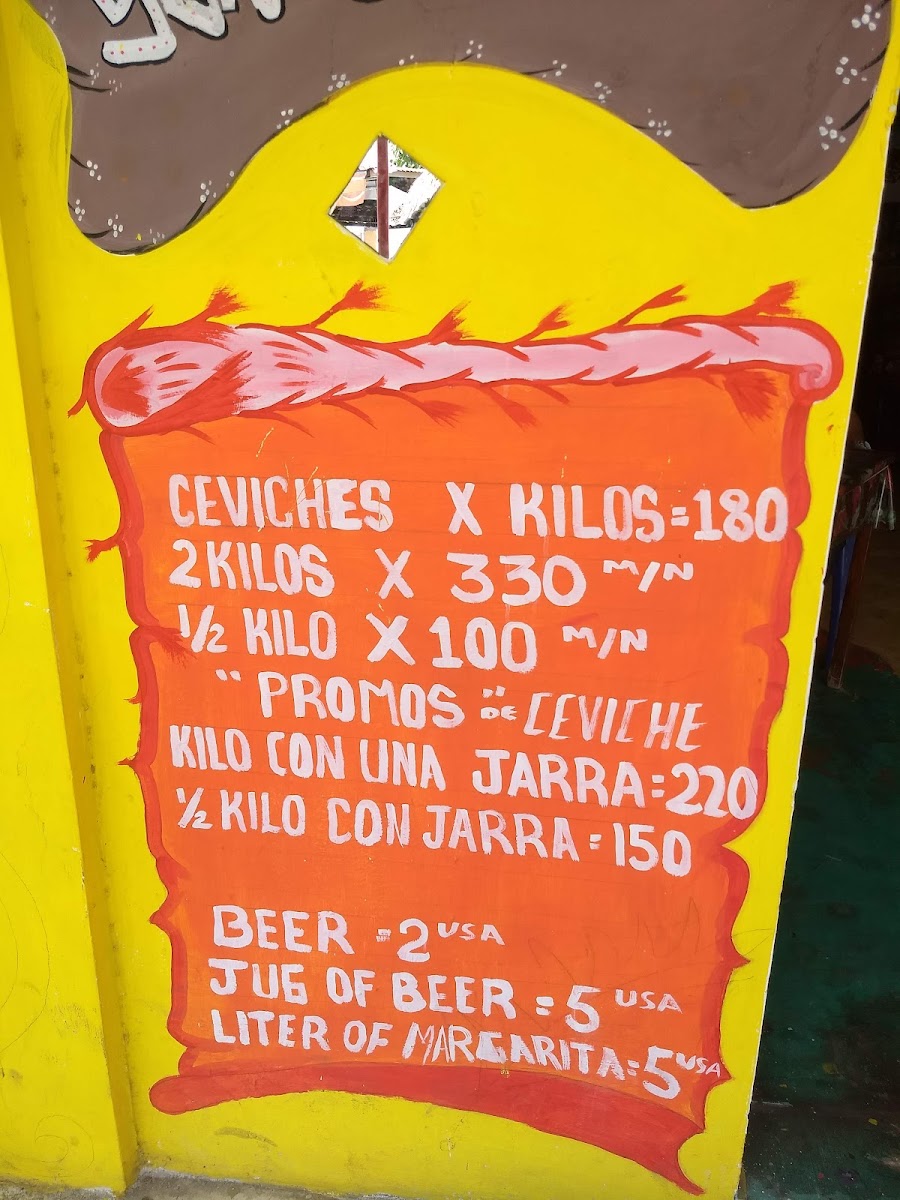 CEVICHES X KILOS=180
2 KILOS X 330 M/N
1/2 KILO X 100 M/N
"PROMOS" DE CEVICHE
KILO CON UNA JARRA=220
1/2 KILO CON JARRA=150
BEER =2 USA
JUG OF BEER = 5 USA
LITER OF MARGARITA=5 USA